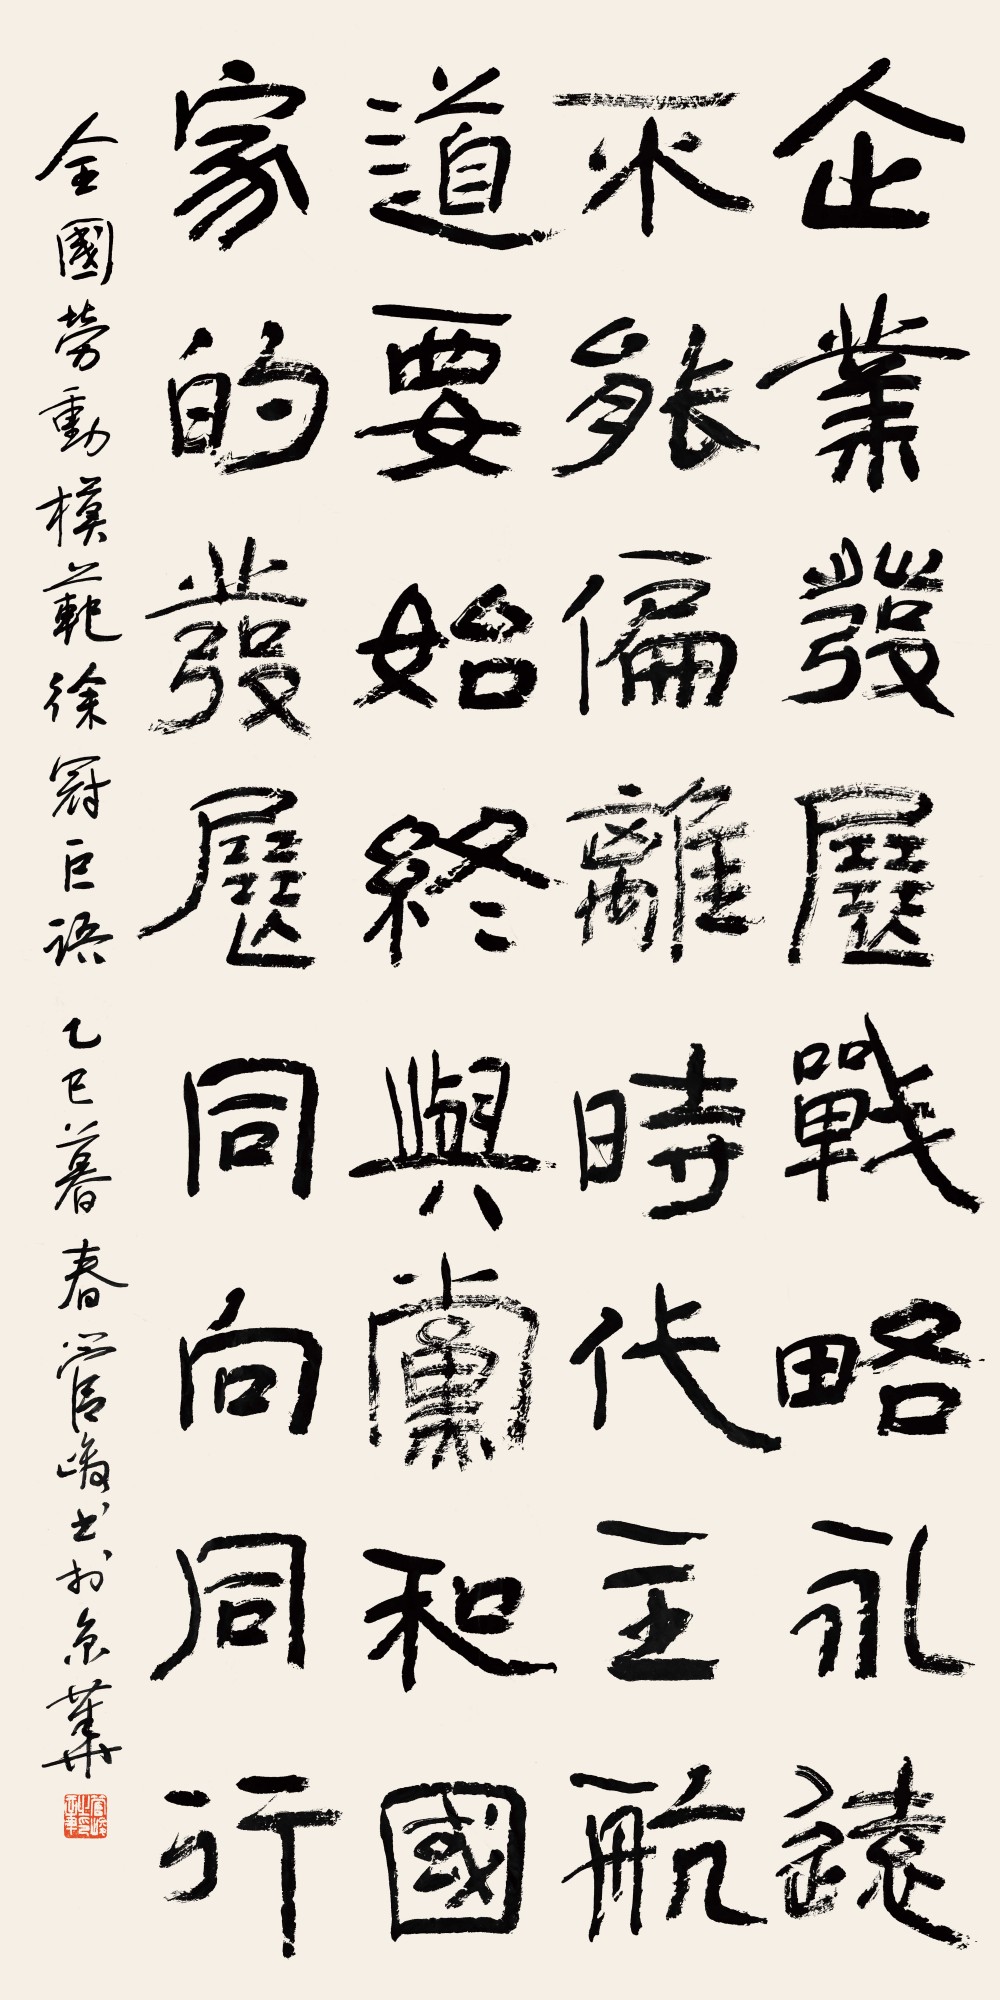 企業發展戰略永遠
不能偏離時代主航
道要始終與黨和國
家的發展同向同行
全國勞動模範徐冠巨語 乙巳暮春管峻书於京華